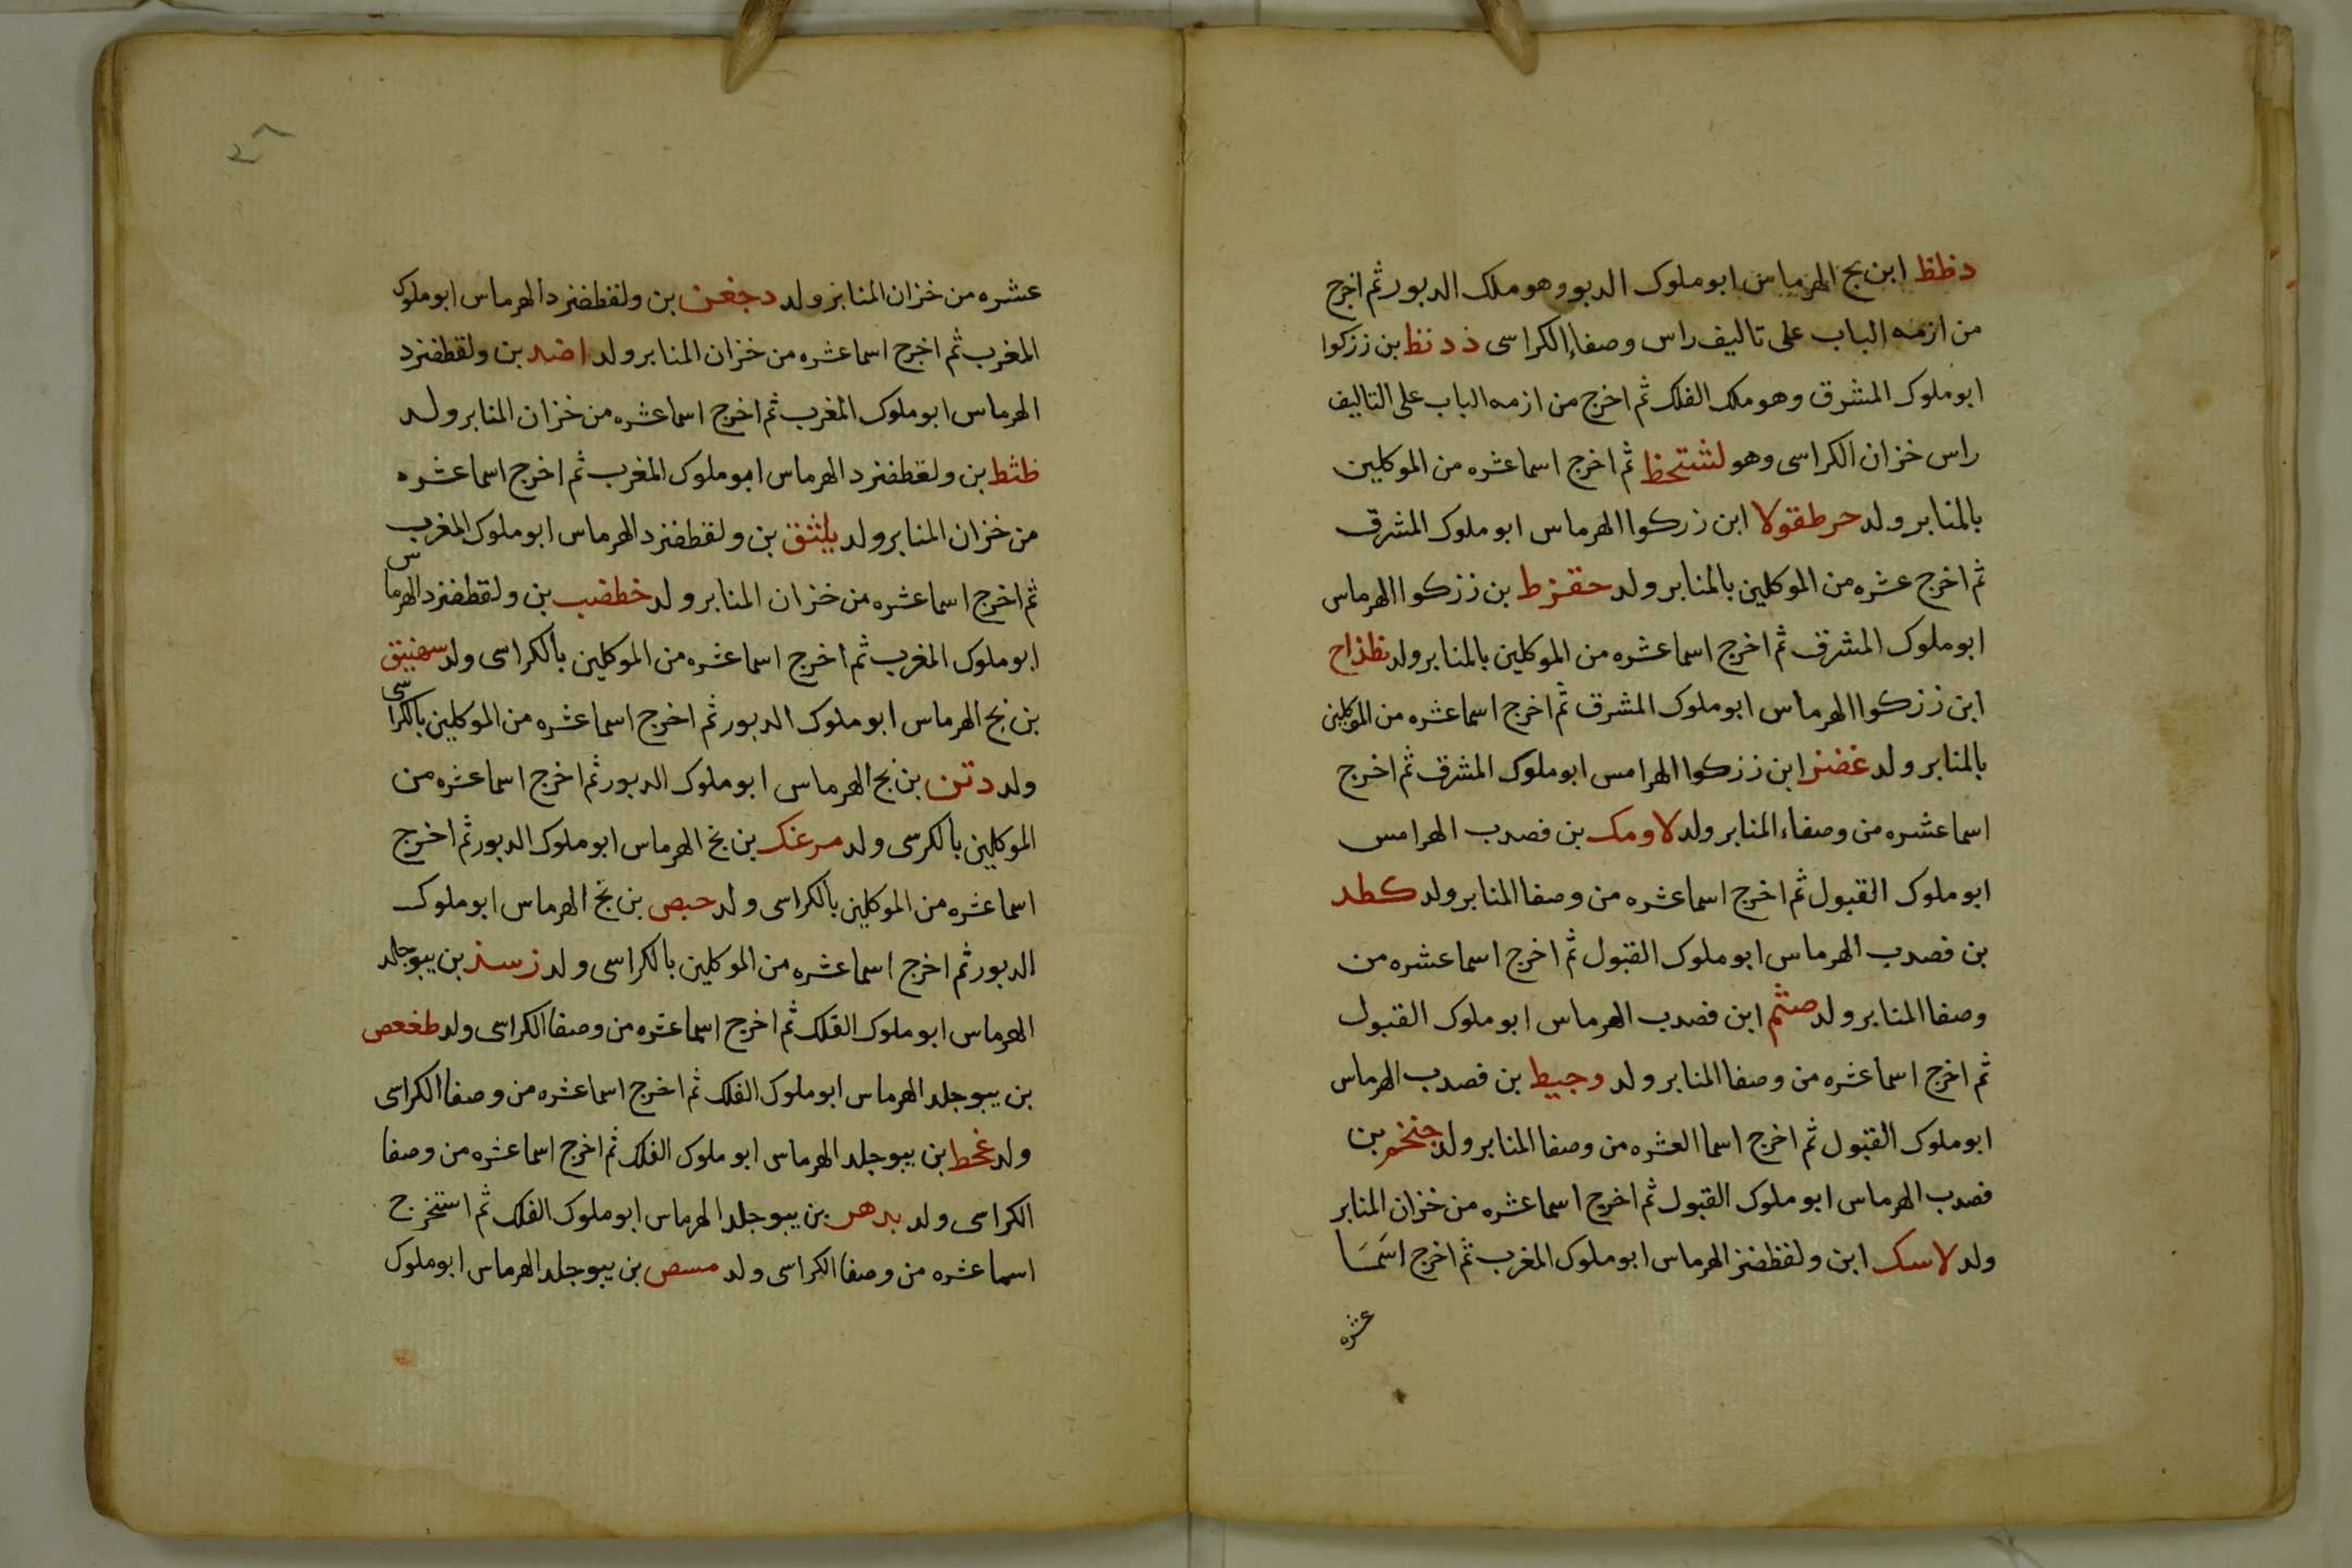 دظظ ابن بج الهرماس ابو ملوك الدبور وهو ملك الدبور ثم اخرج
من ازمه الباب على تاليف راس وصفاء الكراسى ذدنظ بن ززكوا
ابو ملوك المشرق وهو ملك الفلك ثم اخرج من ازمه الباب على التاليف
راس خزان الكراسى وهو لشتحظ ثم اخرج اسما عشره من الموكلين
بالمنابر ولد حرطقولا ابن زركوا الهرماس ابو ملوك المشرق
ثم اخرج عشره من الموكلين بالمنابر ولد حقزط بن ززكوا الهرماس
ابو ملوك المشرق ثم اخرج اسما عشره من الموكلين بالمنابر ولد نظذاح
ابن ززكوا الهرماس ابو ملوك المشرق ثم اخرج اسما عشره من الموكلين
بالمنابر ولد غضنز ابن ززكوا الهرامس ابو ملوك المشرق ثم اخرج
اسما عشره من وصفاء المنابر ولد لاومك بن فصدب الهرامس
ابو ملوك القبول ثم اخرج اسما عشره من وصفا المنابر ولد كطد
بن فصدب الهرماس ابو ملوك القبول ثم اخرج اسما عشره من
وصفا المنابر ولد صثم ابن فصدب الهرماس ابو ملوك القبول
ثم اخرج اسما عشره من وصفا المنابر ولد وجيط بن فصدب الهرماس
ابو ملوك القبول ثم اخرج اسما العشره من وصفا المنابر ولد جنخم بن
فصدب الهرماس ابو ملوك القبول ثم اخرج اسما عشره من خزان المنابر
ولد لاسك ابن ولفظضنز الهرماس ابو ملوك المغرب ثم اخرج اسما
عشره
عشره من خزان المنابر ولد دجغن بن ولقطفنرد الهرماس ابو ملوك
المغرب ثم اخرج اسما عشره من خزان المنابر ولد اضد بن ولقطفنزد
الهرماس ابو ملوك المغرب ثم اخرج اسما عشره من خزان المنابر ولد
ظثط بن ولقطفنزد الهرماس ابو ملوك المغرب ثم اخرج اسما عشره
من خزان المنابر ولد يلثنق بن ولقطفنزد الهرماس ابو ملوك المغرب
ثم اخرج اسما عشره من خزان المنابر ولد خطضب بن ولقطفنزد الهرماس
ابو ملوك المغرب ثم اخرج اسما عشره من الموكلين بالكراسى ولد سهنيق
بن بج الهرماس ابو ملوك الدبور ثم اخرج اسما عشره من الموكلين بالكراسى
ولد دتن بن بج الهرماس ابو ملوك الدبور ثم اخرج اسما عشره من
الموكلين بالكرسى ولد مرغك بن بج الهرماس ابو ملوك الدبور ثم اخرج
اسما عشره من الموكلين بالكراسى ولد حبص بن بج الهرماس ابو ملوك
الدبور ثم اخرج اسما عشره من الموكلين بالكراسى ولد زسذ بن يبوجلد
الهرماس ابو ملوك الفلك ثم اخرج اسما عشره من وصفا الكراسى ولد طغعص
بن يبوجلد الهرماس ابو ملوك الفلك ثم اخرج اسما عشره من وصفا الكراسى
ولد غخط بن يبوجلد الهرماس ابو ملوك الفلك ثم اخرج اسما عشره من وصفا
الكراسى ولد بدهر بن يبوجلد الهرماس ابو ملوك الفلك ثم استخرج
اسما عشره من وصفا الكراسى ولد مسص بن يبوجلد الهرماس ابو ملوك